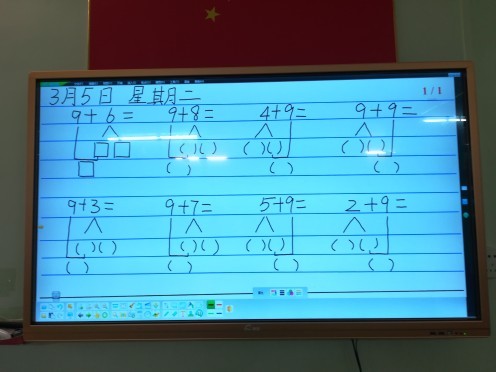 3月5日 星期二
1/1
9+6= 9+8= 4+9= 9+9=
( )( ) ( )( ) ( )( )
( ) ( ) ( )
9+3= 9+7= 5+9= 2+9=
( )( ) ( )( ) ( )( ) ( )( )
( ) ( ) ( ) ( )